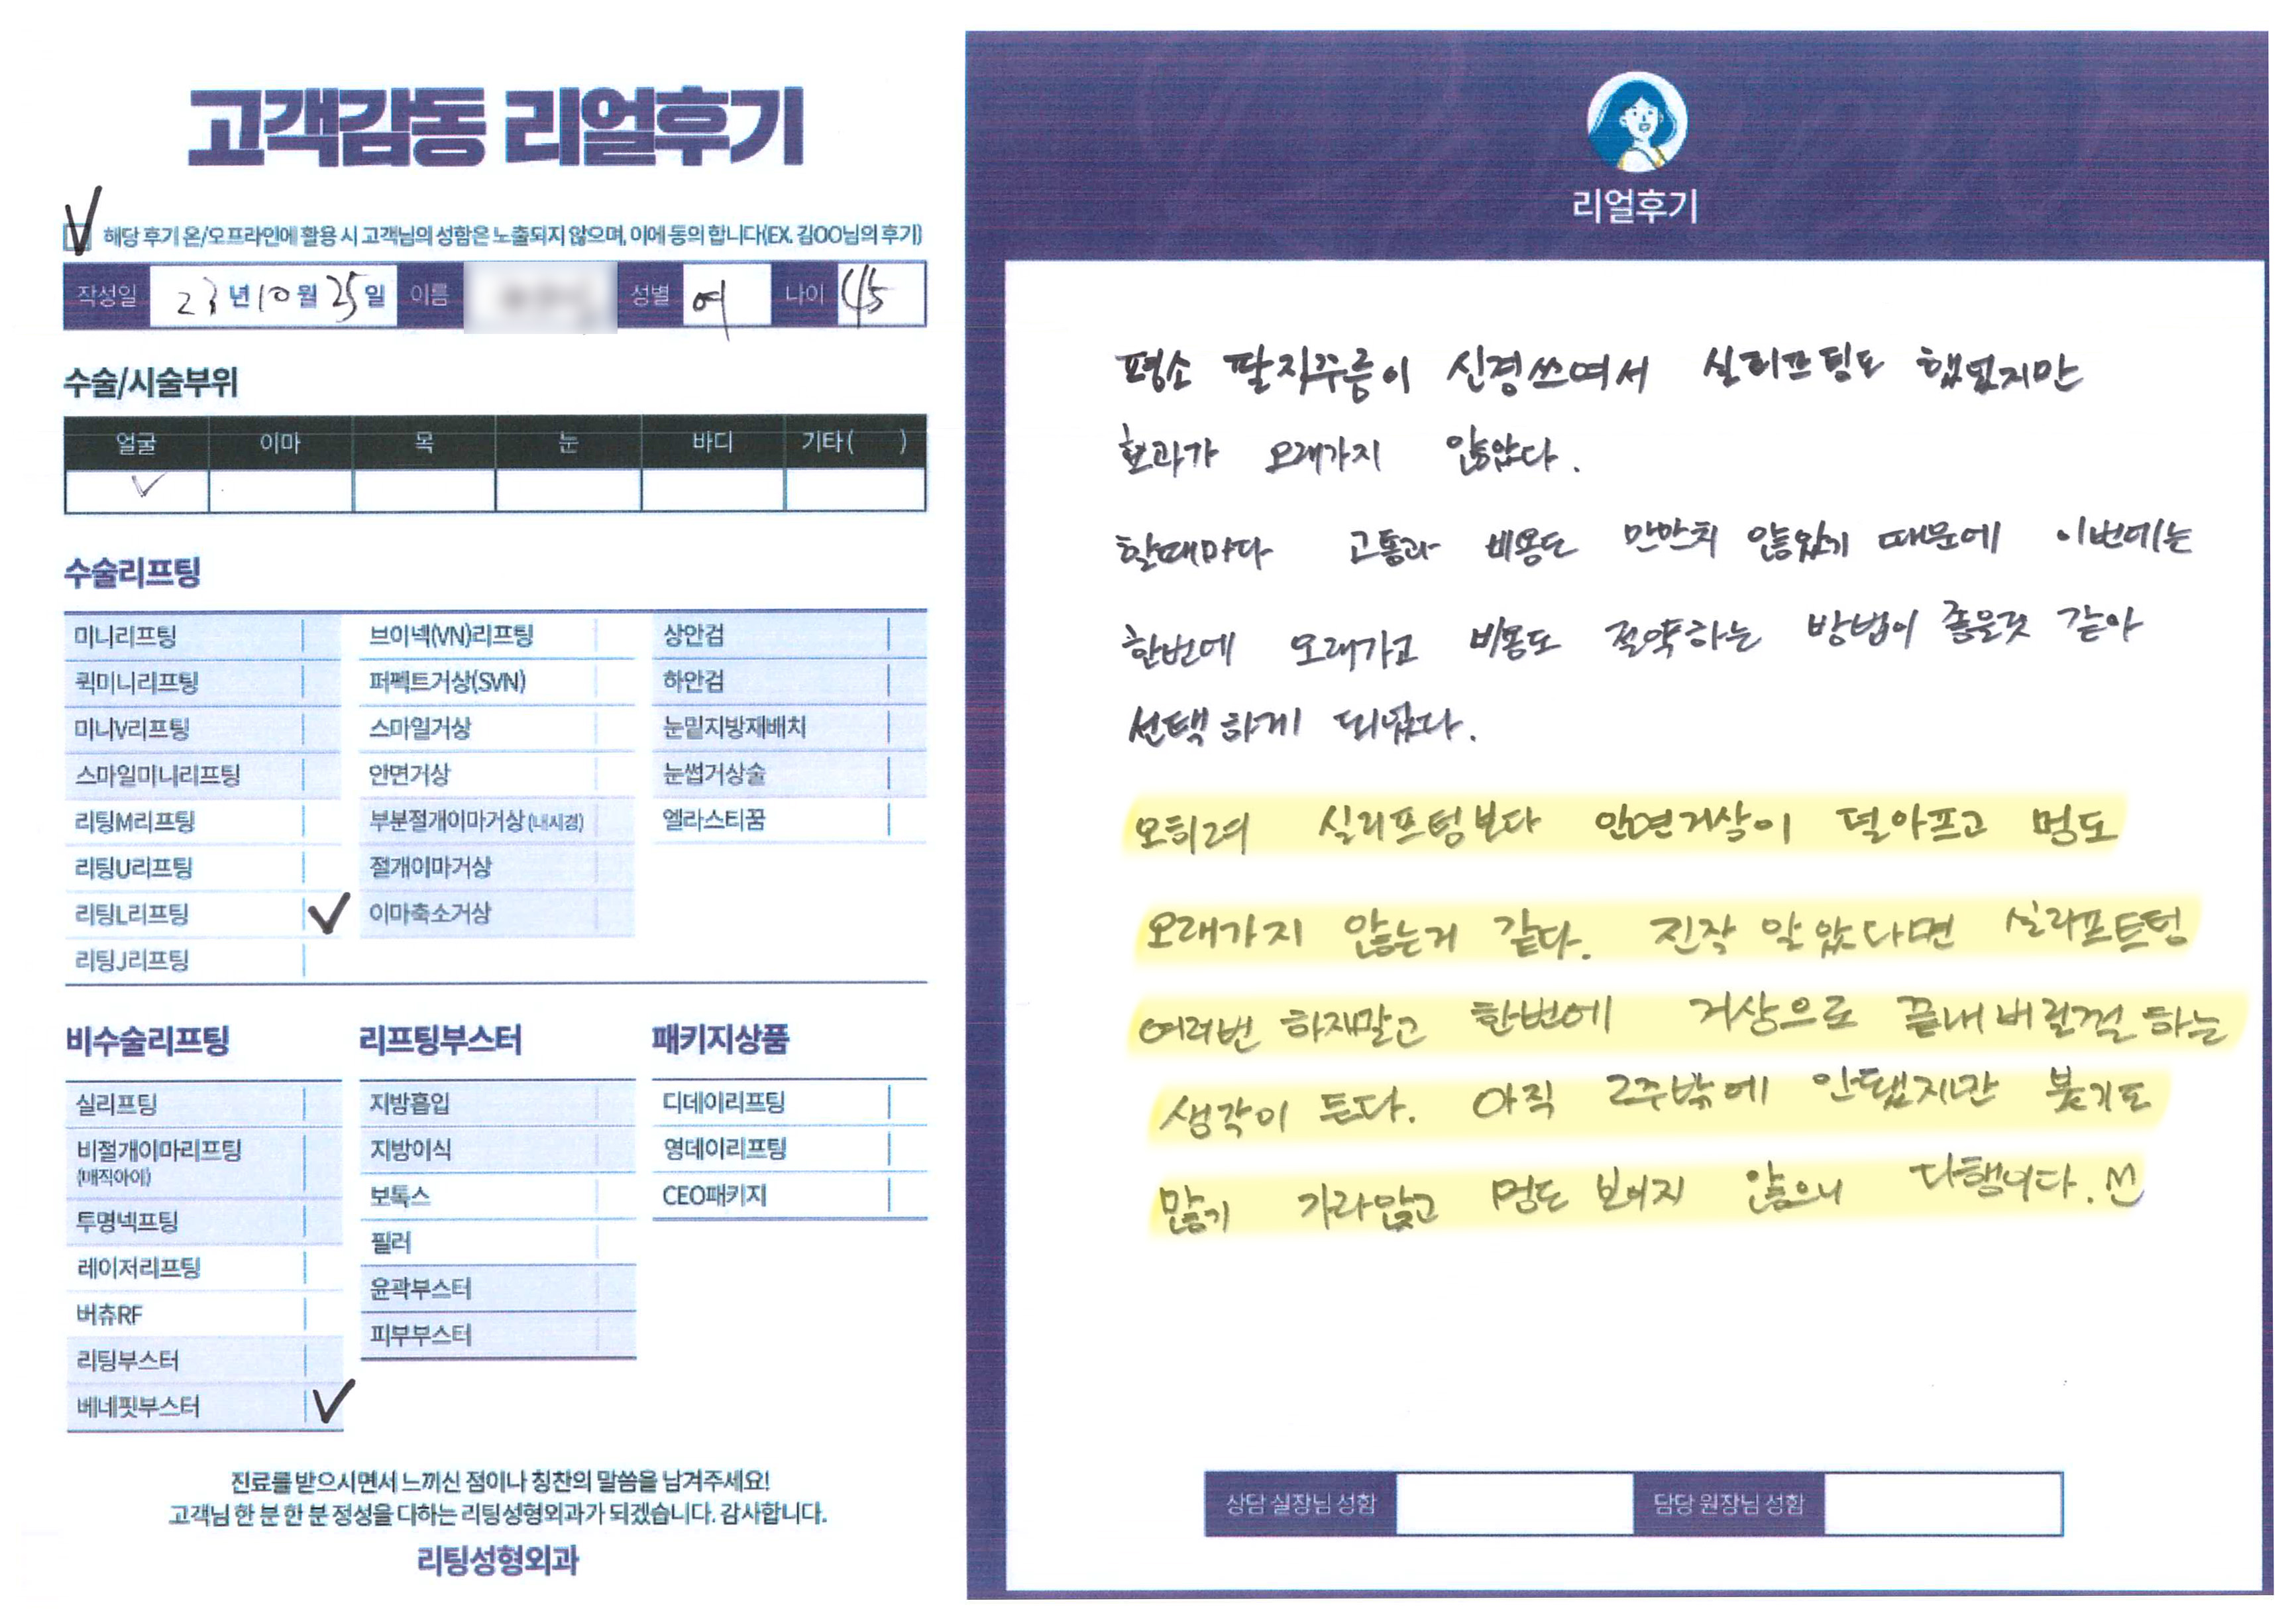 고객감동 리얼후기
해당 후기 온/오프라인에 활용 시 고객님의 성함은 노출되지 않으며, 이에 동의 합니다(EX. 김OO님의 후기)
작성일 23년 10월 25일 이름 성별 여 나이 45
수술/시술부위
얼굴 이마 목 눈 바디 기타( )
수술리프팅
미니리프팅 브이넥(VN)리프팅 상안검
퀵미니리프팅 퍼펙트거상(SVN) 하안검
미니V리프팅 스마일거상 눈밑지방재배치
스마일미니리프팅 안면거상 눈썹거상술
리팅M리프팅 부분절개이마거상(내시경) 엘라스티꿈
리팅U리프팅 절개이마거상
리팅L리프팅 이마축소거상
리팅J리프팅
비수술리프팅 리프팅부스터 패키지상품
실리프팅 지방흡입 디데이리프팅
비절개이마리프팅 지방이식 영데이리프팅
(매직아이)
투명넥프팅 보톡스 CEO패키지
레이저리프팅 필러
버츄RF 윤곽부스터
리팅부스터 피부부스터
베네핏부스터
진료를 받으시면서 느끼신 점이나 칭찬의 말씀을 남겨주세요!
고객님 한 분 한 분 정성을 다하는 리팅성형외과가 되겠습니다. 감사합니다.
리팅성형외과
리얼후기
평소 팔자주름이 신경쓰여서 실리프팅도 했었지만
효과가 오래가지 않았다.
할때마다 고통과 비용도 만만치 않았기 때문에 이번에는
한번에 오래가고 비용도 절약하는 방법이 좋을것 같아
선택하게 되었다.
오히려 실리프팅보다 안면거상이 덜아프고 멍도
오래가지 않는거 같다. 진작 알았다면 실리프트팅
여러번 하지말고 한번에 거상으로 끝내버릴걸 하는
생각이 든다. 아직 2주밖에 안됐지만 붓기도
많이 가라앉고 멍도 보이지 않으니 다행이다.
상담 실장님 성함 담당 원장님 성함